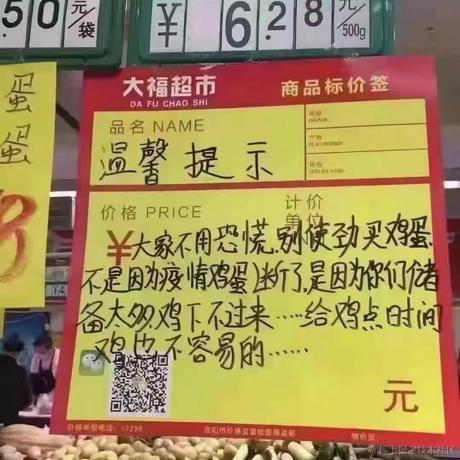 .50 元/袋
¥ 6.28 元/500g
蛋
蛋
大福超市
DA FU CHAO SHI
商品标价签
品名 NAME
温馨提示
价格 PRICE
计价
单位
¥ 大家不用恐慌,别使劲买鸡蛋,
不是因为疫情鸡蛋断了,是因为你们储
备太多,鸡下不过来……给鸡点时间
鸡也不容易的……
元
价格举报电话:12358
物价员